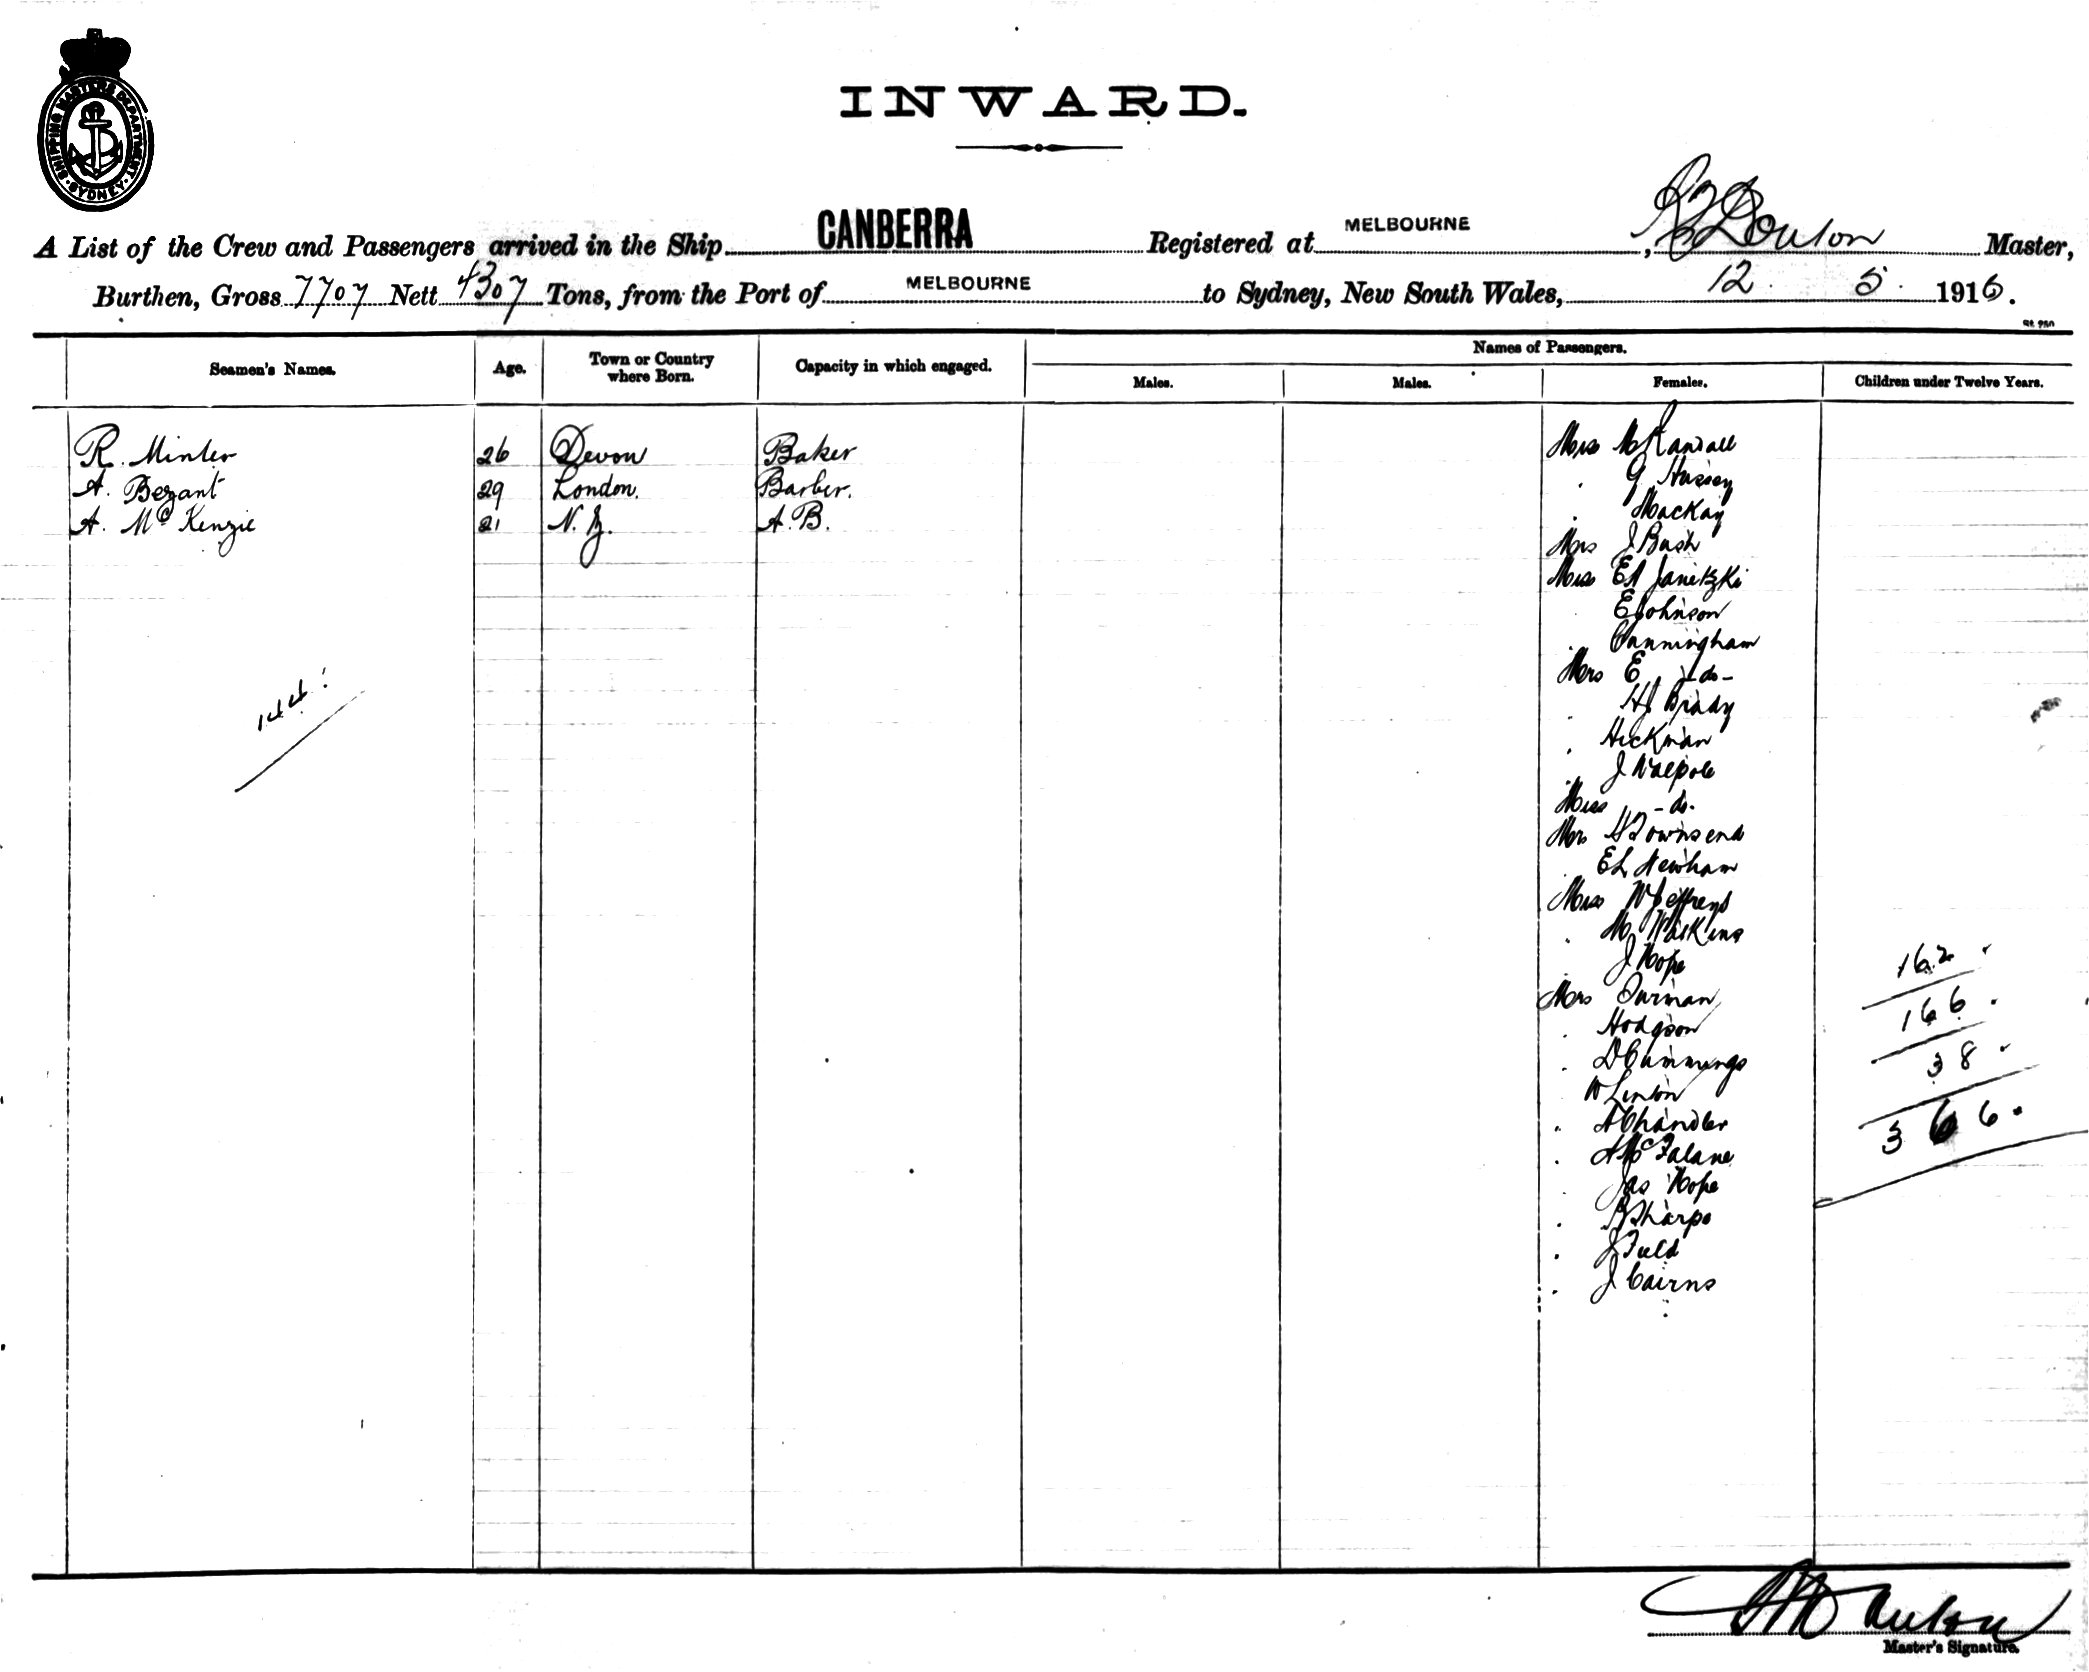 SHIPPING MASTERS DEPARTMENT SYDNEY
INWARD.
A List of the Crew and Passengers arrived in the Ship CANBERRA Registered at MELBOURNE, Master,
Burthen, Gross 7707 Nett 4307 Tons, from the Port of MELBOURNE to Sydney, New South Wales, 12. 5. 1916.
Seamen's Names. Age. Town or Country where Born. Capacity in which engaged. Names of Passengers.
Males. Males. Females. Children under Twelve Years.
R. Minter 26 Devon Baker
A. Bezant 29 London. Barber.
A. McKenzie 21 N.Z. A.B.
144
Miss M Randall
. G Hussey
. MacKay
Mrs J Bush
Miss Janetzki
E Johnson
. Cunningham
Mrs E -do-
. HJ Brady
. Hickman
. J Walpole
Miss -do.
Mrs Townsend
. EL Newham
Miss W Jeffreys
. M Watkins
J Hope
Mrs Durman
. Hodgson
. D Cummings
W Linton
. A Chandler
. A McFalane
. Jas Hope
. Sharpe
. J Field
. J Cairns
162.
166.
38.
366.
Master's Signature.